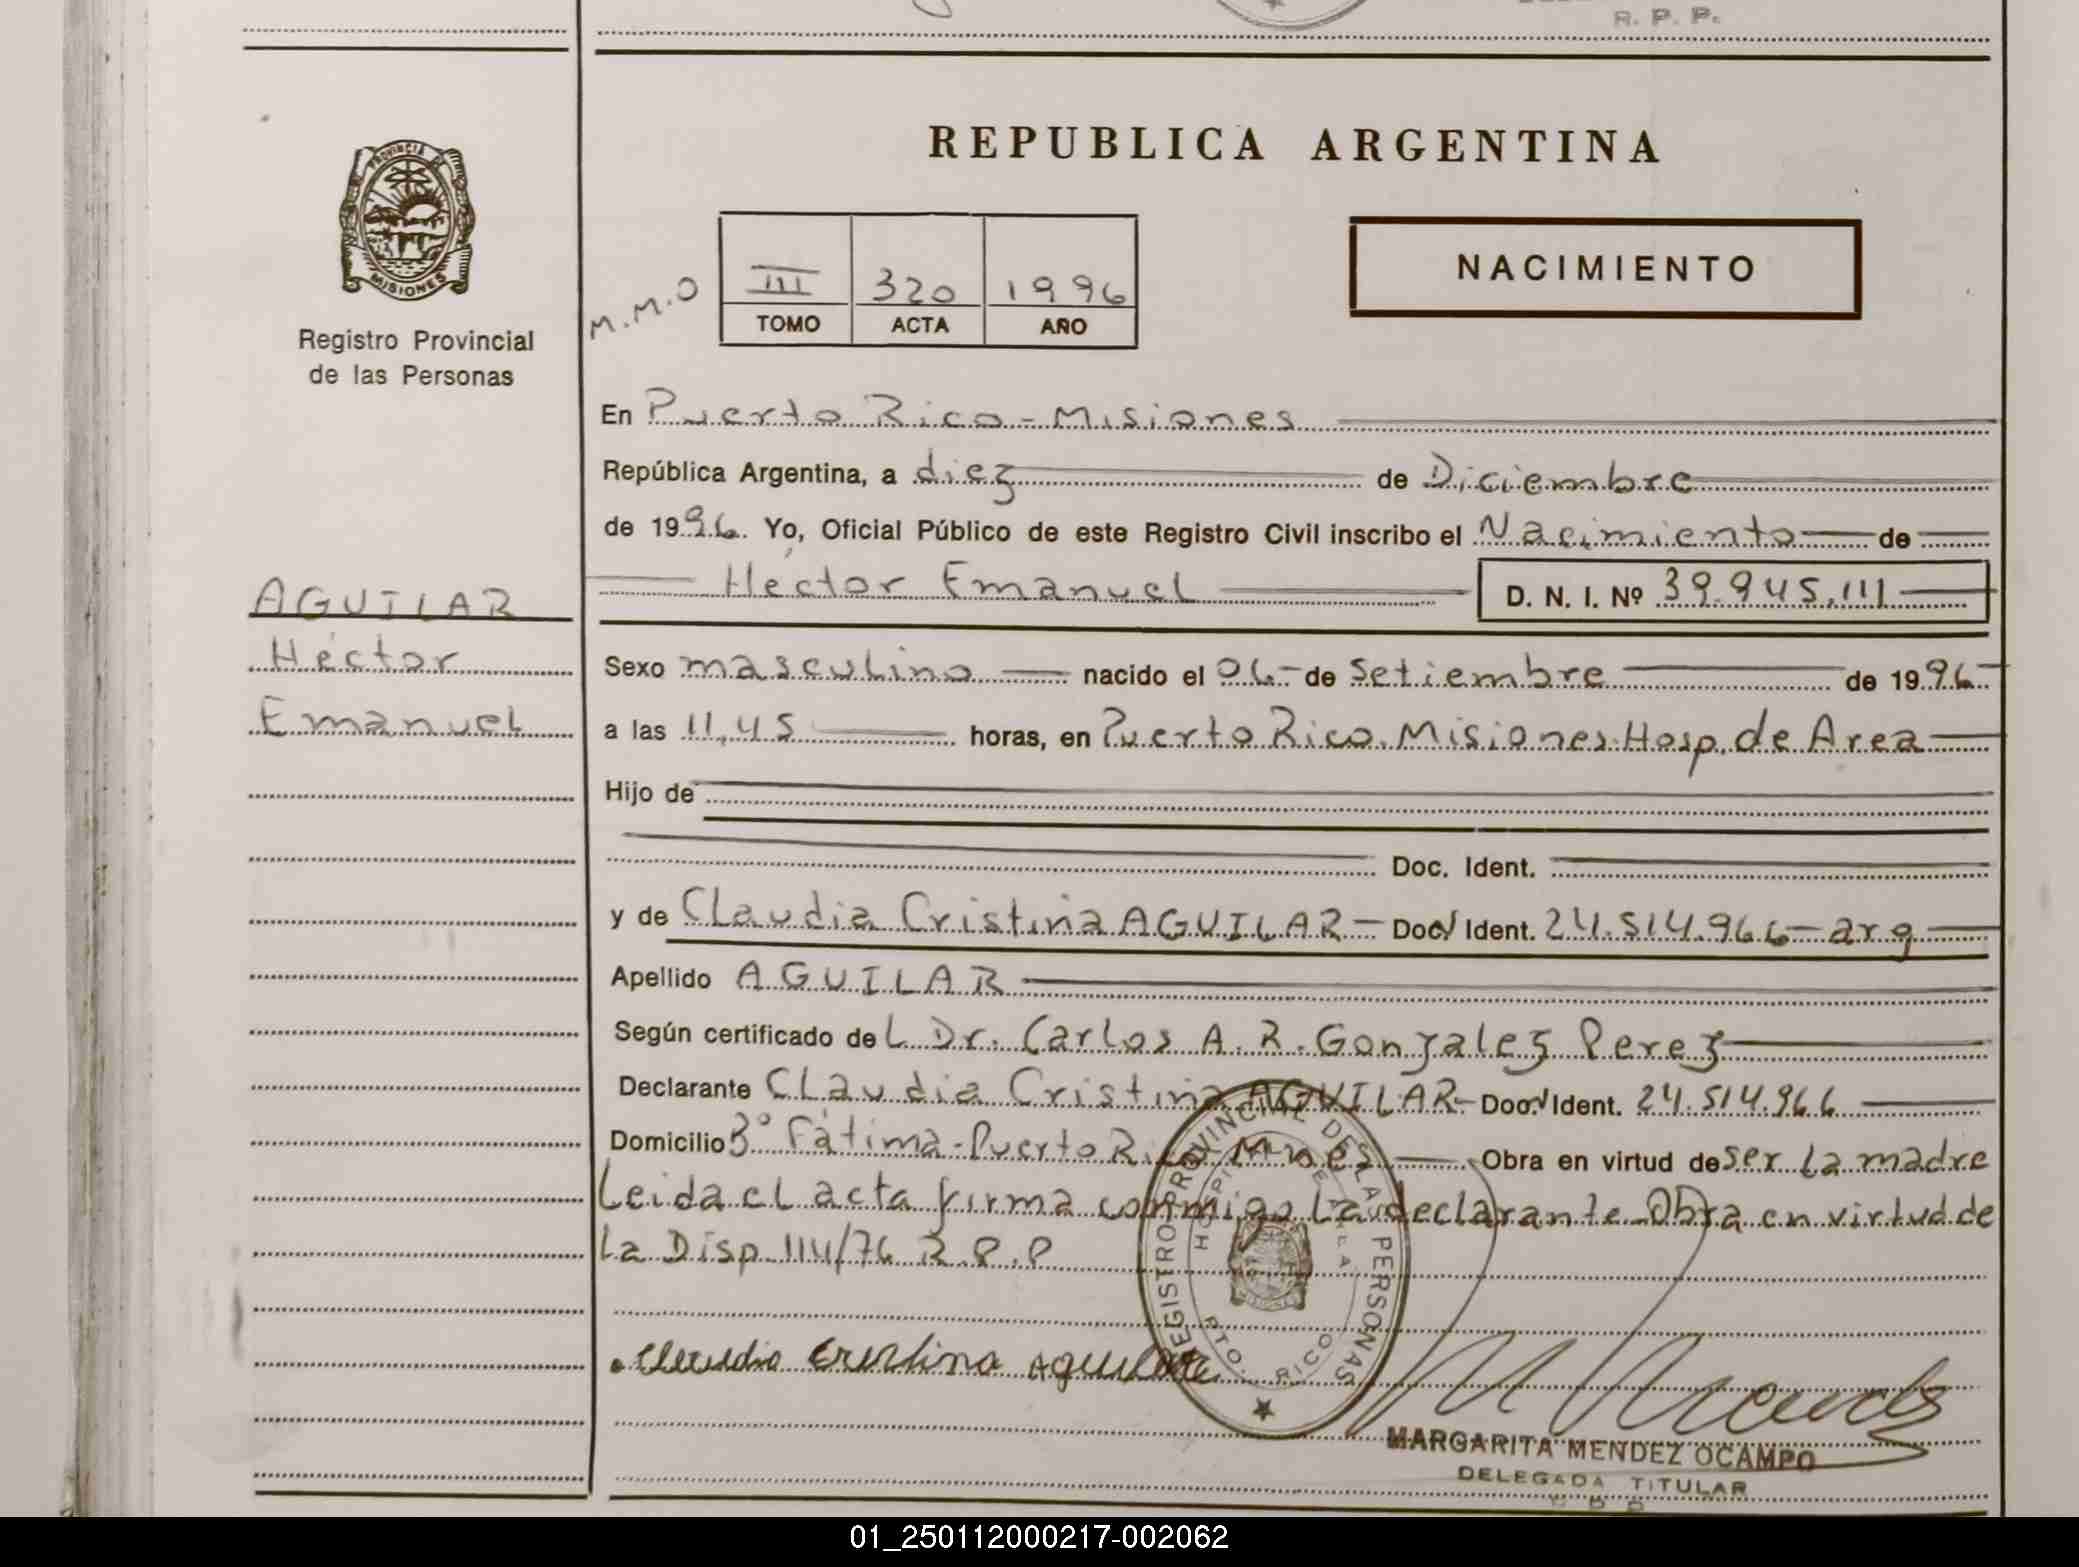 R. P. P.
PROVINCIA DE
MISIONES
Registro Provincial
de las Personas
REPUBLICA ARGENTINA
NACIMIENTO
M.M.O
III 320 1996
TOMO ACTA AÑO
En Puerto Rico - Misiones
República Argentina, a diez de Diciembre
de 1996. Yo, Oficial Público de este Registro Civil inscribo el Nacimiento de
Héctor Emanuel D. N. I. Nº 39.945.111
AGUILAR
Héctor
Emanuel
Sexo masculino nacido el 06 de Setiembre de 1996
a las 11,45 horas, en Puerto Rico. Misiones. Hosp. de Area
Hijo de
Doc. Ident.
y de Claudia Cristina AGUILAR - Doc. Ident. 24.514.966 - arg
Apellido AGUILAR
Según certificado del Dr. Carlos A. R. Gonzalez Perez
Declarante Claudia Cristina AGUILAR - Doc. Ident. 24.514.966
Domicilio Bº Fátima - Puerto Rico Mnes Obra en virtud de ser la madre
Leida el acta firma conmigo la declarante - Obra en virtud de
la Disp 114/76 R.P.P
REGISTRO PROVINCIAL DE LAS PERSONAS
HOSPITAL DE AREA
PTO. RICO
Claudia Cristina Aguilar
MARGARITA MENDEZ OCAMPO
DELEGADA TITULAR
01_250112000217-002062